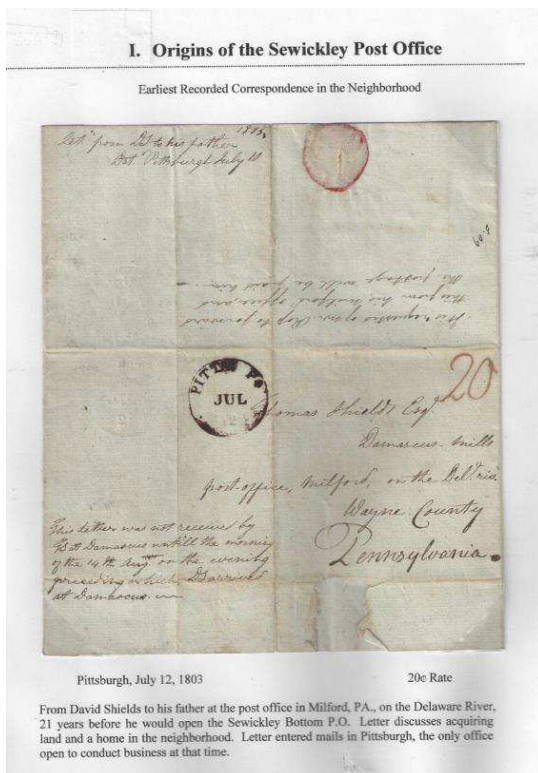 I. Origins of the Sewickley Post Office
Earliest Recorded Correspondence in the Neighborhood
1803
Let. from DS to his father
Dat. Pittsburgh July 10
It is requested of Mr. to forward
this from his Milford office, and
the postage will be paid him
PITTS PA
JUL
12
20
Thomas Shields Esqr.
Damascus Mills
post-office, Milford, on the Del. riv.
Wayne County
Pennsylvania.
This letter was not received by
TS at Damascus untill the morning
of the 14th Augt on the evening
preceding which DS arrived
at Damascus
Pittsburgh, July 12, 1803
20¢ Rate
From David Shields to his father at the post office in Milford, PA., on the Delaware River,
21 years before he would open the Sewickley Bottom P.O. Letter discusses acquiring
land and a home in the neighborhood. Letter entered mails in Pittsburgh, the only office
open to conduct business at that time.